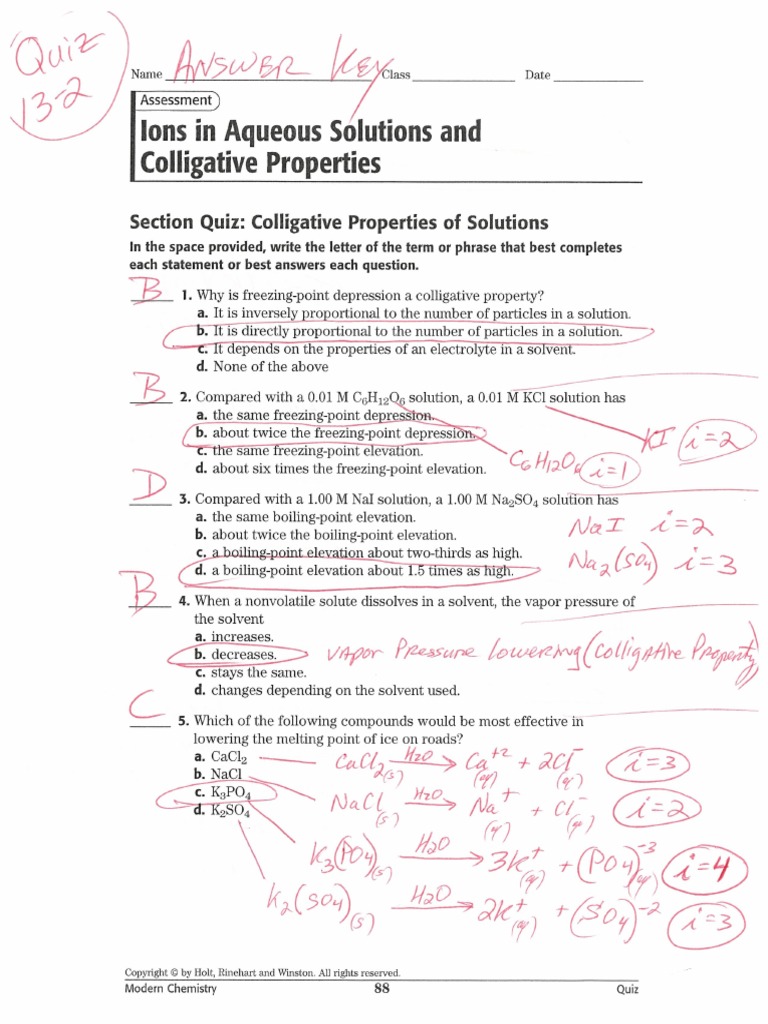 Quiz
13-2
Name ANSWER KEY Class Date
Assessment
Ions in Aqueous Solutions and
Colligative Properties
Section Quiz: Colligative Properties of Solutions
In the space provided, write the letter of the term or phrase that best completes
each statement or best answers each question.
B 1. Why is freezing-point depression a colligative property?
a. It is inversely proportional to the number of particles in a solution.
b. It is directly proportional to the number of particles in a solution.
c. It depends on the properties of an electrolyte in a solvent.
d. None of the above
B 2. Compared with a 0.01 M C₆H₁₂O₆ solution, a 0.01 M KCl solution has
a. the same freezing-point depression.
b. about twice the freezing-point depression.
KI i=2
c. the same freezing-point elevation.
C6H12O6 i=1
d. about six times the freezing-point elevation.
D 3. Compared with a 1.00 M NaI solution, a 1.00 M Na₂SO₄ solution has
a. the same boiling-point elevation.
NaI i=2
b. about twice the boiling-point elevation.
c. a boiling-point elevation about two-thirds as high.
Na₂(SO₄) i=3
d. a boiling-point elevation about 1.5 times as high.
B 4. When a nonvolatile solute dissolves in a solvent, the vapor pressure of
the solvent
a. increases.
b. decreases. VAPOR PRESSURE LOWERING (Colligative Property)
c. stays the same.
d. changes depending on the solvent used.
C 5. Which of the following compounds would be most effective in
lowering the melting point of ice on roads?
a. CaCl₂ CaCl₂(s) H₂O → Ca⁺²(aq) + 2Cl⁻(aq) i=3
b. NaCl NaCl(s) H₂O → Na⁺(aq) + Cl⁻(aq) i=2
c. K₃PO₄
d. K₂SO₄
K₃(PO₄)(s) H₂O → 3K⁺(aq) + (PO₄)⁻³(aq) i=4
K₂(SO₄)(s) H₂O → 2K⁺(aq) + (SO₄)⁻² i=3
Copyright © by Holt, Rinehart and Winston. All rights reserved.
Modern Chemistry 88 Quiz